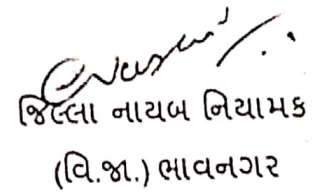 જિલ્લા નાયબ નિયામક
(વિ.જા.) ભાવનગર